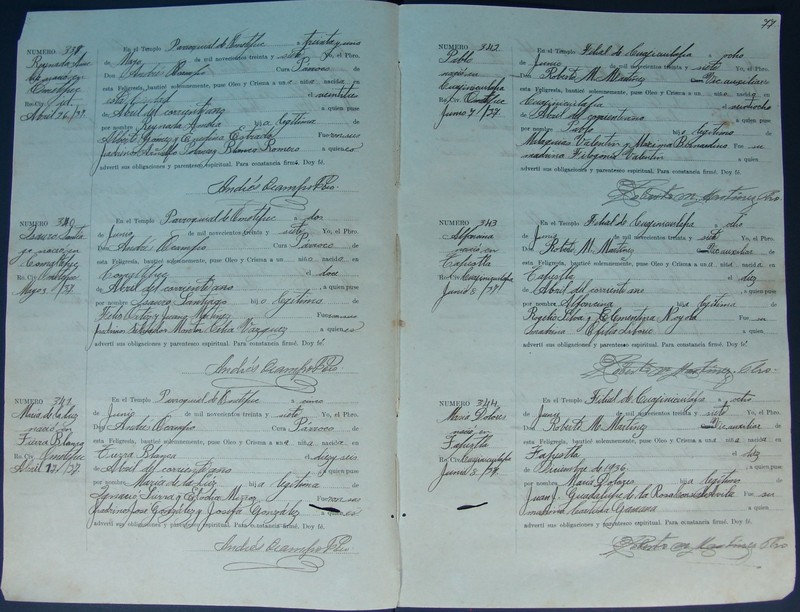 NUMERO 339
Reynada Ame
nació en
Ometepec
Re. Civ. id.
Abril 26/37.
En el Templo Parroquial de Ometepec a treinta y uno
de Mayo de mil novecientos treinta y siete Yo, el Pbro.
Don Andrés Ocampo Cura Párroco de
esta Feligresía, bauticé solemnemente, puse Oleo y Crisma a una niña nacida en
esta Ciudad el veintitres
de Abril del corriente año a quien puse
por nombre Reynada Amelia hija legítima de
Fueron sus
padrinos Polanco Romero a quienes
advertí sus obligaciones y parentesco espiritual. Para constancia firmé. Doy fé.
Andrés Ocampo Pbro.
NUMERO 340
Isauro Santia
go nació en
Re. Civ. Ometepec
Mayo 3/37.
En el Templo Parroquial de Ometepec a dos
de Junio de mil novecientos treinta y siete Yo, el Pbro.
Don Andrés Ocampo Cura Párroco de
esta Feligresía, bauticé solemnemente, puse Oleo y Crisma a un niño nacido en
el doce
de Abril del corriente año, a quien puse
por nombre Isauro Santiago hijo legítimo de
Felix Ortiz y Juana Martinez Fueron sus
padrinos Salvador Vazquez a quienes
advertí sus obligaciones y parentesco espiritual. Para constancia firmé. Doy fé.
Andrés Ocampo Pbro.
NUMERO 341
Maria de la Luz
nació en
Tierra Blanca
Re. Civ. Ometepec
Abril 19/37.
En el Templo Parroquial de Ometepec a cinco
de Junio de mil novecientos treinta y siete Yo, el Pbro.
Don Andrés Ocampo Cura Párroco de
esta Feligresía, bauticé solemnemente, puse Oleo y Crisma a una niña nacida en
Tierra Blanca el diez y seis
de Abril del corriente año a quien puse
por nombre Maria de la Luz hija legítima de
Fueron sus
padrinos Jose Gonzalez y Josefa Gonzalez a quienes
advertí sus obligaciones y parentesco espiritual. Para constancia firmé. Doy fé.
Andrés Ocampo Pbro.
77
NUMERO 342
Pablo
nació en
Cuajinicuilapa
Re. Civ. Ometepec
Junio 7/37.
En el Templo Filial de Cuajinicuilapa a ocho
de Junio de mil novecientos treinta y siete Yo, el Pbro.
Don Roberto M. Martinez Vic. auxiliar de
esta Feligresía, bauticé solemnemente, puse Oleo y Crisma a un niño nacido en
Cuajinicuilapa el veintiocho
de Abril del corriente año a quien puse
por nombre Pablo hijo legítimo de
Melquiades Valentin y Maxima Bernardino Fue su
madrina Filogonia Valentin a quien
advertí sus obligaciones y parentesco espiritual. Para constancia firmé. Doy fé.
Roberto M. Martinez Pbro.
NUMERO 343
nació en
Tapextla
Re. Civ. Cuajinicuilapa
Junio 8/37.
En el Templo Filial de Cuajinicuilapa a ocho
de Junio de mil novecientos treinta y siete Yo, el Pbro.
Don Roberto M. Martinez Vic. auxiliar de
esta Feligresía, bauticé solemnemente, puse Oleo y Crisma a una niña nacida en
Tapextla el diez
de Abril del corriente año, a quien puse
por nombre hija legítima de
Rogelio Silva y Clementina Noyola Fue su
madrina a quien
advertí sus obligaciones y parentesco espiritual. Para constancia firmé. Doy fé.
Roberto M. Martinez Pbro.
NUMERO 344
Maria Dolores
nació en
Tapextla
Re. Civ. Cuajinicuilapa
Junio 8/37.
En el Templo Filial de Cuajinicuilapa a ocho
de Junio de mil novecientos treinta y siete Yo, el Pbro.
Don Roberto M. Martinez Vic. auxiliar de
esta Feligresía, bauticé solemnemente, puse Oleo y Crisma a una niña nacida en
Tapextla el diez
de Diciembre de 1936 a quien puse
por nombre Maria Dolores hija legítima de
Juan J. Guadalupe de la Rosa Fue su
madrina a quien
advertí sus obligaciones y parentesco espiritual. Para constancia firmé. Doy fé.
Roberto M. Martinez Pbro.